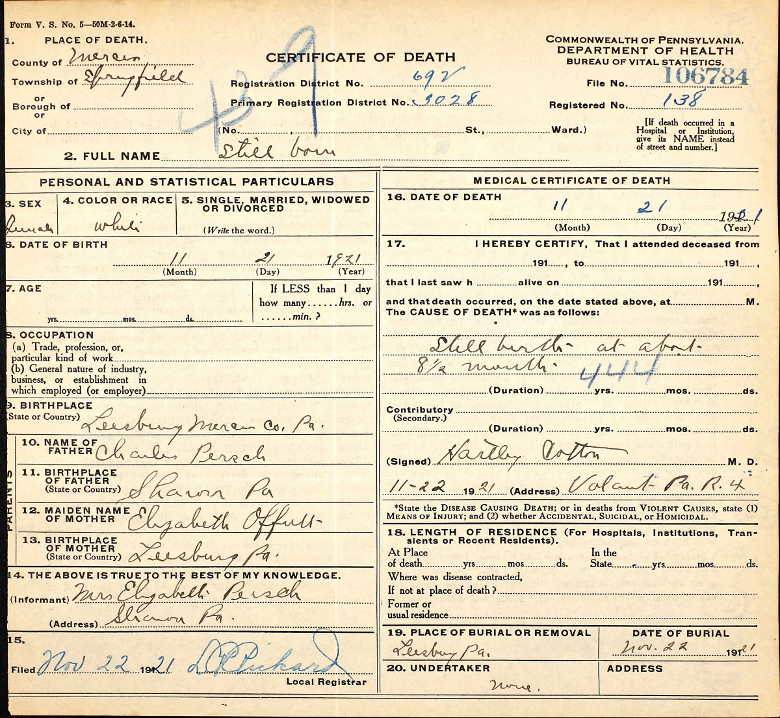 Form V. S. No. 5—50M-2-6-14.
1. PLACE OF DEATH.
County of Mercer
Township of Springfield
or
Borough of
or
City of
CERTIFICATE OF DEATH
Registration District No. 692
Primary Registration District No. 3028
(No. , St., Ward.)
COMMONWEALTH OF PENNSYLVANIA.
DEPARTMENT OF HEALTH
BUREAU OF VITAL STATISTICS.
File No. 106784
Registered No. 138
[If death occurred in a
Hospital or Institution,
give its NAME instead
of street and number.]
2. FULL NAME Still born
PERSONAL AND STATISTICAL PARTICULARS
3. SEX
Female
4. COLOR OR RACE
White
5. SINGLE, MARRIED, WIDOWED
OR DIVORCED
(Write the word.)
6. DATE OF BIRTH
11 21 1921
(Month) (Day) (Year)
7. AGE
yrs. mos. ds.
If LESS than 1 day
how many......hrs. or
......min.?
8. OCCUPATION
(a) Trade, profession, or,
particular kind of work
(b) General nature of industry,
business, or establishment in
which employed (or employer)
9. BIRTHPLACE
(State or Country)
Leesburg Mercer Co. Pa.
PARENTS
10. NAME OF
FATHER
Charles Persch
11. BIRTHPLACE
OF FATHER
(State or Country)
Sharon Pa
12. MAIDEN NAME
OF MOTHER
Elizabeth Offutt
13. BIRTHPLACE
OF MOTHER
(State or Country)
Leesburg Pa.
14. THE ABOVE IS TRUE TO THE BEST OF MY KNOWLEDGE.
(Informant) Mrs Elizabeth Persch
(Address) Sharon Pa.
15.
Filed Nov 22 1921
Local Registrar
MEDICAL CERTIFICATE OF DEATH
16. DATE OF DEATH
11 21 1921
(Month) (Day) (Year)
17. I HEREBY CERTIFY, That I attended deceased from
191 , to 191 ,
that I last saw h alive on 191 ,
and that death occurred, on the date stated above, at M.
The CAUSE OF DEATH* was as follows:
Still birth at about
8½ months
444
(Duration) yrs. mos. ds.
Contributory
(Secondary.)
(Duration) yrs. mos. ds.
(Signed) Hartley Cotton M. D.
11-22 1921 (Address) Volant Pa. R. 4
*State the DISEASE CAUSING DEATH; or in deaths from VIOLENT CAUSES, state (1)
MEANS OF INJURY; and (2) whether ACCIDENTAL, SUICIDAL, or HOMICIDAL.
18. LENGTH OF RESIDENCE (For Hospitals, Institutions, Tran-
sients or Recent Residents).
At Place In the
of death yrs mos ds. State yrs mos ds.
Where was disease contracted,
If not at place of death?
Former or
usual residence
19. PLACE OF BURIAL OR REMOVAL
Leesburg Pa.
DATE OF BURIAL
Nov. 22 1921
20. UNDERTAKER
None.
ADDRESS